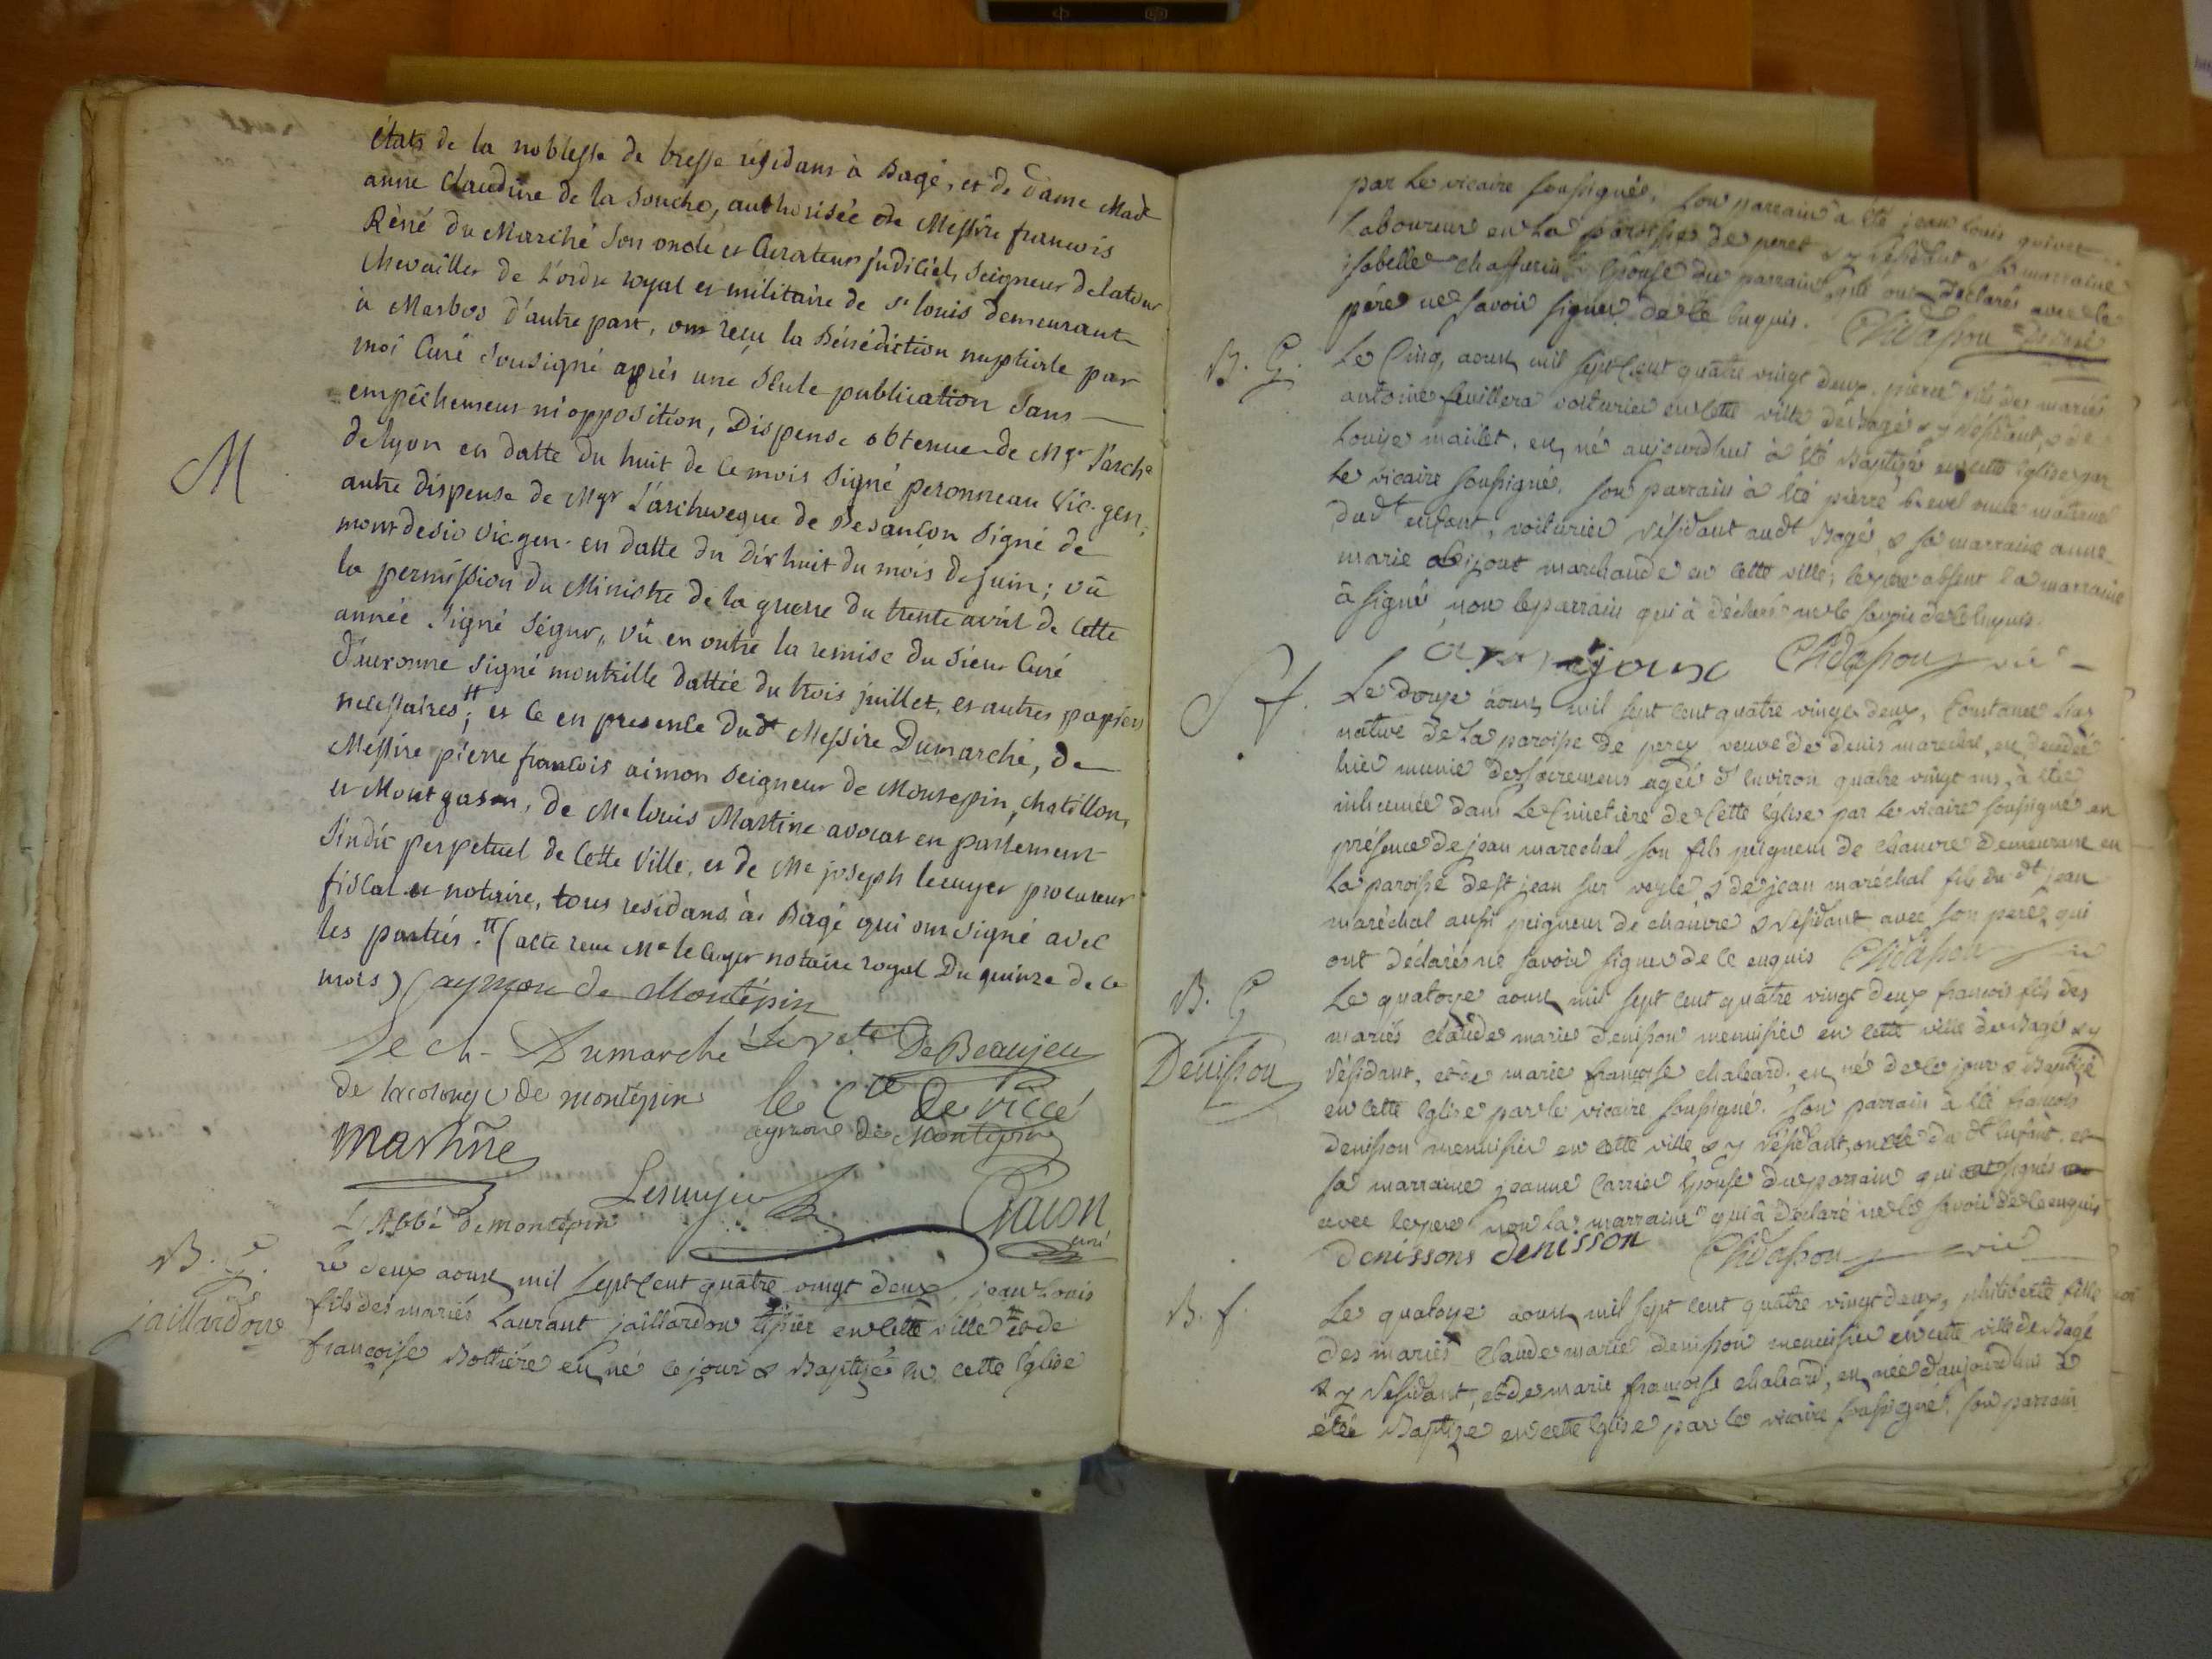 états de la noblesse de bresse résidant à Bagé, et de Dame Made
anne Claudine de la Souche, authorisée de Messire francois
Réné du Marché son oncle et Curateur judiciel, seigneur delatour
Chevailler de L'ordre royal et militaire de st louis demeurant
à Marboz d'autre part, ont reçu la Bénédiction nuptiale par
moi Curé Sousigné après une seule publication sans
empêchement ni opposition, Dispense obtenue de Mgr l'arche
M
de lyon en datte du huit de ce mois signé peronneau Vic. gen.
autre dispense de Mgr L'archeveque de Besancon signé de
en datte du dix huit du mois de juin ; vû
la permission du Ministre de la guerre du trente avril de Cette
année signé ségur, vû en outre la remise du sieur Curé
d'auxonne signé dattée du trois juillet, et autres papiers
necessaires ; et ce en presence dudt Messire Dumarché, de
Messire pierre francois aimon seigneur de Montepin, chatillon,
et de Me louis Martine avocat en parlement
sindic perpetuel de Cette Ville, et de Me joseph lecuyer procureur
fiscal et notaire, tous residans à Bagé qui ont signé avec
les parties. (acte recu Me le cuyer notaire royal Du quinze de ce
mois) aymon de Montépin
Le ch. Dumarché DeBeaujeu
de de montépin le Cte De
Martine aymon de Montepin
Lecuyer
L'Abbé de montepin curé
B. G.
Le deux aoust mil sept Cent quatre vingt deux, jean Louis
jaillardon
fils des mariés Laurant jaillardon en cette ville et de
francoise Bottiére est né ce jour & Baptizé en cette Eglise
par Le vicaire soussigné, son parrain a été jean louis
Laboureur en La paroisse de peret & y Résidant & sa marraine
isabelle Epouse du parrain, qui ont Déclarés avec le
pére ne savoir signer de ce Enquis. Chidassou
B. G.
Le Cinq aoust mil sept Cent quatre vingt deux, pierre fils des mariés
antoine voiturier en Cette ville de Bagé & y Résidant, & de
Louise maillet, est né aujourdhui à été Baptizé en cette Eglise par
Le vicaire soussigné. son parrain à été pierre oncle maternel
dudt enfant, voiturier Résidant audt Bagé, & sa marraine anne
marie marchande en Cette ville, le pere absent la marraine
à signé, non le parrain qui à déclaré ne le savoir de ce Enquis.
Chidassou vic
S f.
Le Douze aoust mil sept Cent quatre vingt deux, Constance
native de La paroisse de perex, veuve de denis marechal, est decedée
hier munie des sacremens agée d'environ quatre vingt ans, à étée
inhumée dans Le Cimetiére de Cette Eglise par Le vicaire soussigné en
présence de jean marechal son fils peigneur de chanvre Demeurant en
La paroisse de st jean sur veyle & de jean maréchal fils du dt jean
maréchal aussi peigneur de chanvre & Résidant avec son pere, qui
ont déclarés ne savoir signer de Ce enquis Chidassou vic
B. G
Denisson
Le quatorze aoust mil sept Cent quatre vingt deux francois fils des
mariés Claude marie denisson menuisier en cette ville de Bagé & y
Résidant, et de marie francoise chaleard, est né de ce jour & Baptizé
en cette Eglise par le vicaire soussigné. son parrain à été francois
denisson menuisier en cette ville & y Résidant, oncle du dt Enfant, et
sa marraine jeanne Carrier Epouse du parrain qui signés
avec le pere non la marraine qui à déclaré ne le savoir de ce enquis
denissons denisson Chidassou vic
B. f.
Le quatorze aoust mil sept Cent quatre vingt deux, philiberte fille
des mariés Claude marie denisson menuisier en cette ville de Bagé
& y Résidant, et de marie francoise chaleard, est née d'aujourdhui à
étée Baptizé en cette Eglise par le vicaire soussigné, son parrain